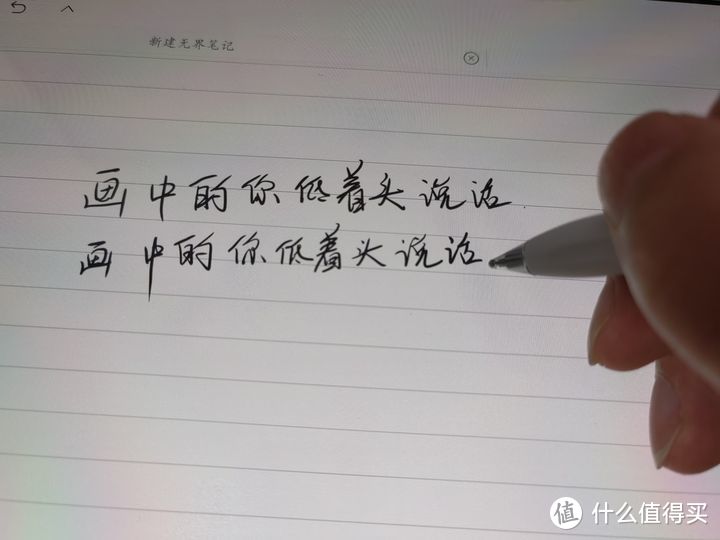 新建无界笔记
画中的你低着头说话
画中的你低着头说话
值 什么值得买